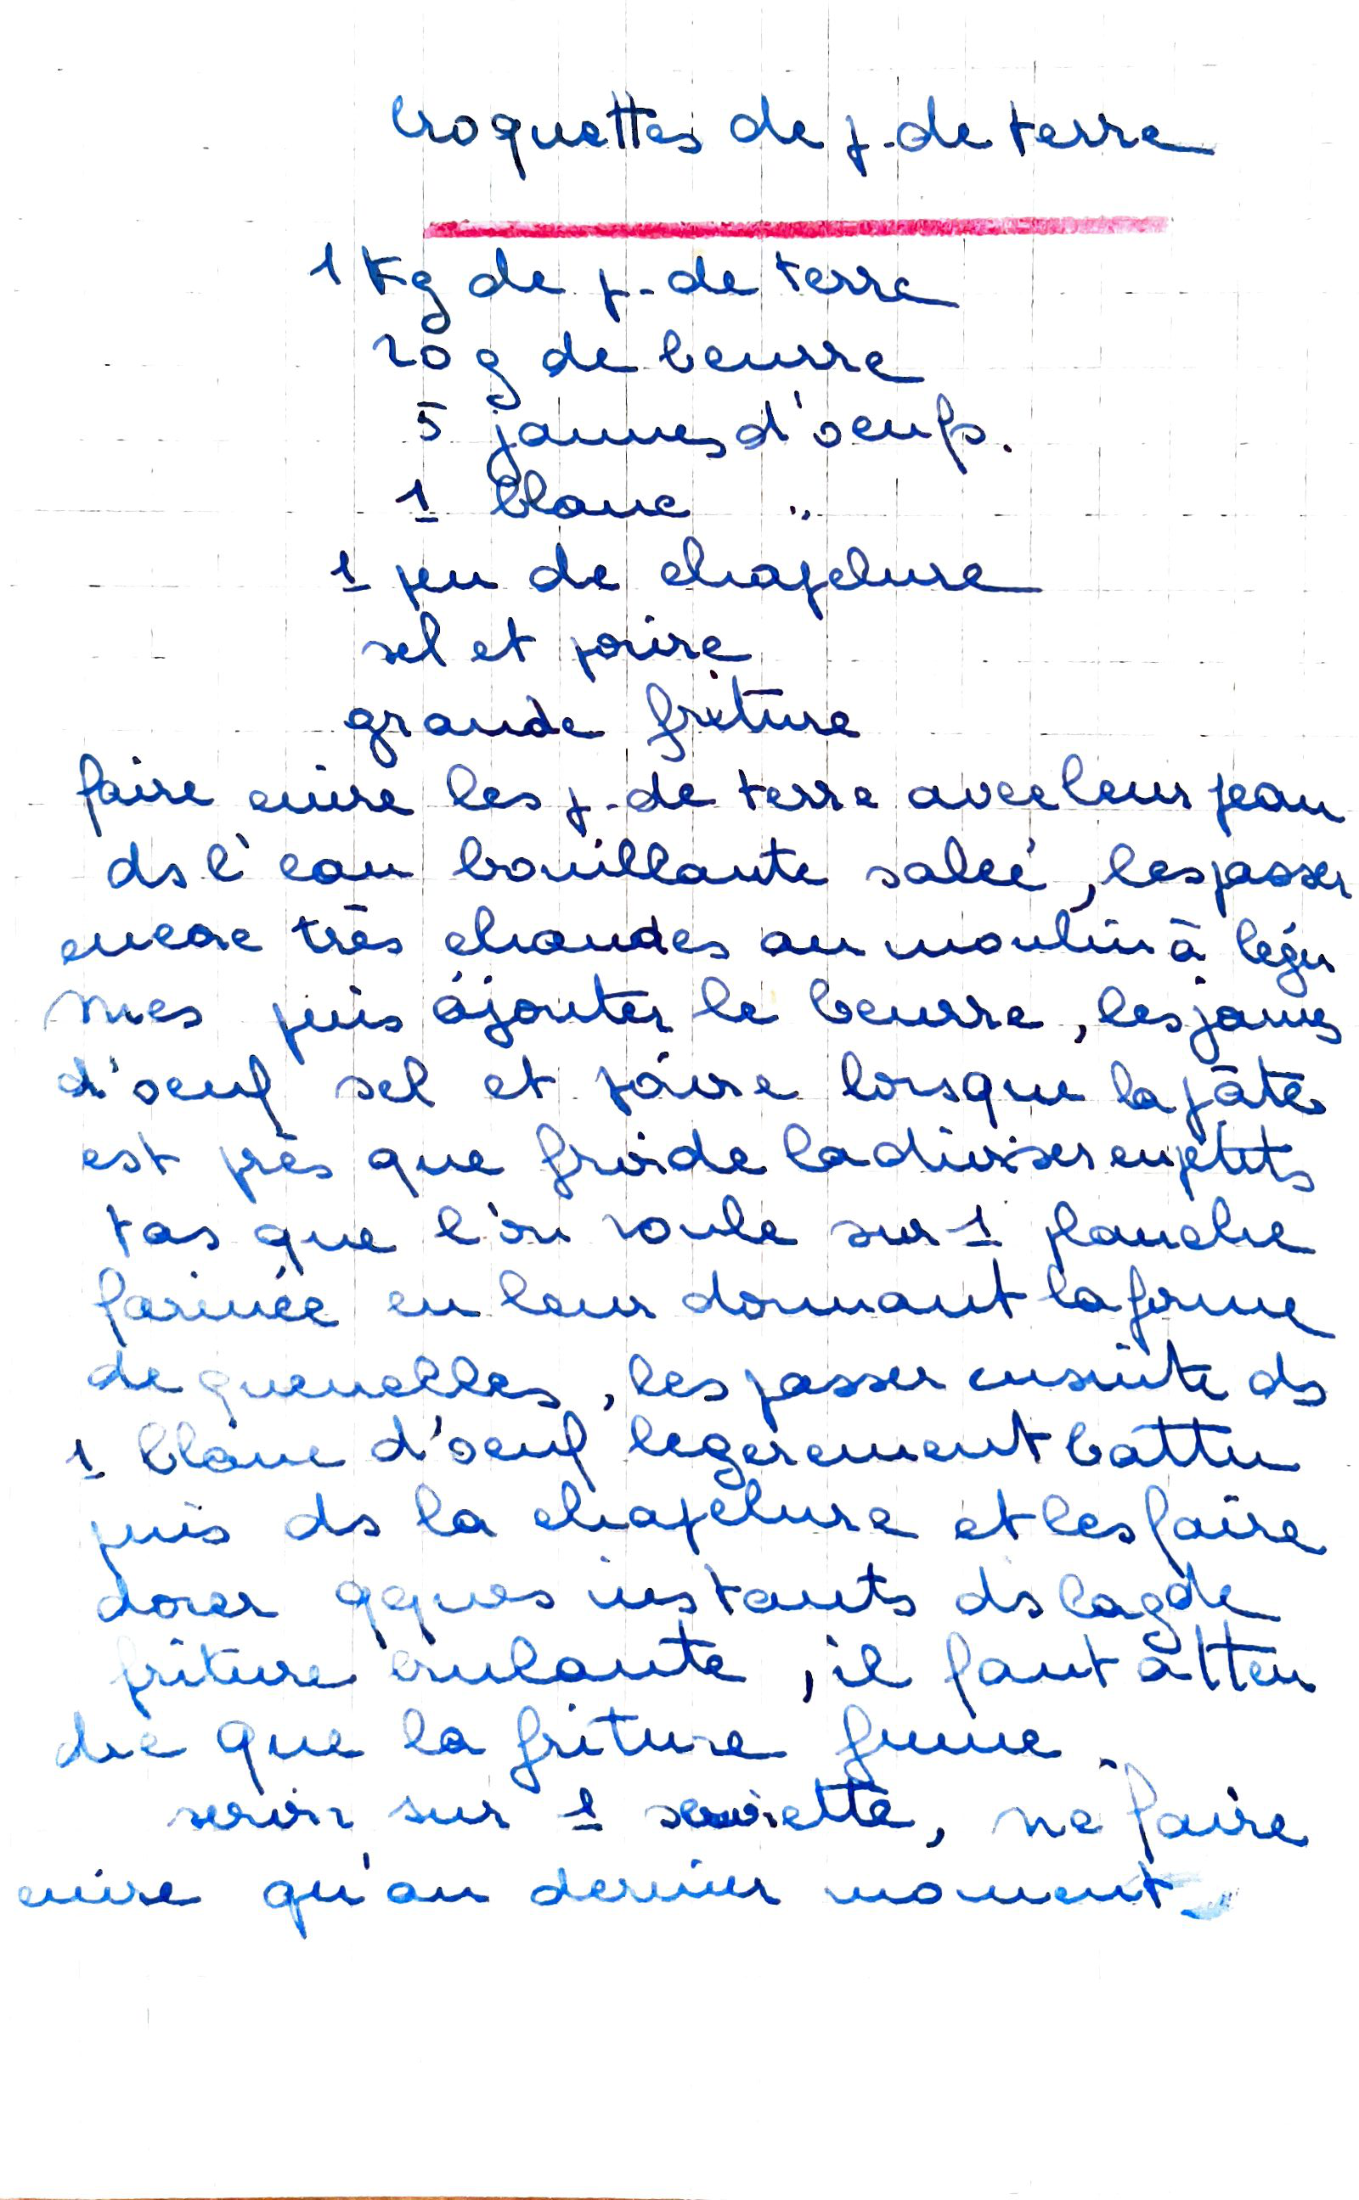 Croquettes de p. de terre
1 Kg de p. de terre
20 g de beurre
5 jaunes d'oeufs.
1 blanc "
1 peu de chapelure
sel et poivre
grande friture
faire cuire les p. de terre avec leur peau
ds l'eau bouillante salée, les passer
encore très chaudes au moulin à légu
mes puis ajouter le beurre, les jaunes
d'oeuf sel et poivre lorsque la pâte
est près que froide la diviser en petits
tas que l'on roule sur 1 planche
farinée en leur donnant la forme
de quenelles, les passer ensuite ds
1 blanc d'oeuf legerement battu
puis ds la chapelure et les faire
dorer qques instants ds la gde
friture brulante, il faut atten
dre que la friture fume.
servir sur 1 serviette, ne faire
cuire qu'au dernier moment.